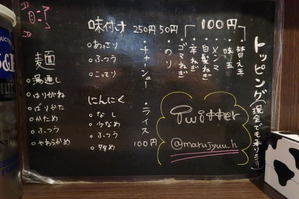 トッピング(現金でも承ります)
100円
替え玉
味玉
メンマ
白髪ねぎ
辛ねぎ
コーン
250円 50円
・チャーシュー
・のり
・ライス
100円
味付け
○ あっさり
○ ふつう
○ こってり
にんにく
○ なし
○ 少なめ
○ ふつう
○ 多め
麺面
○ 湯通し
○ はりがね
○ ばりかた
○ かため
○ ふつう
○ やわらかめ
Twitter
@marujyuu.h